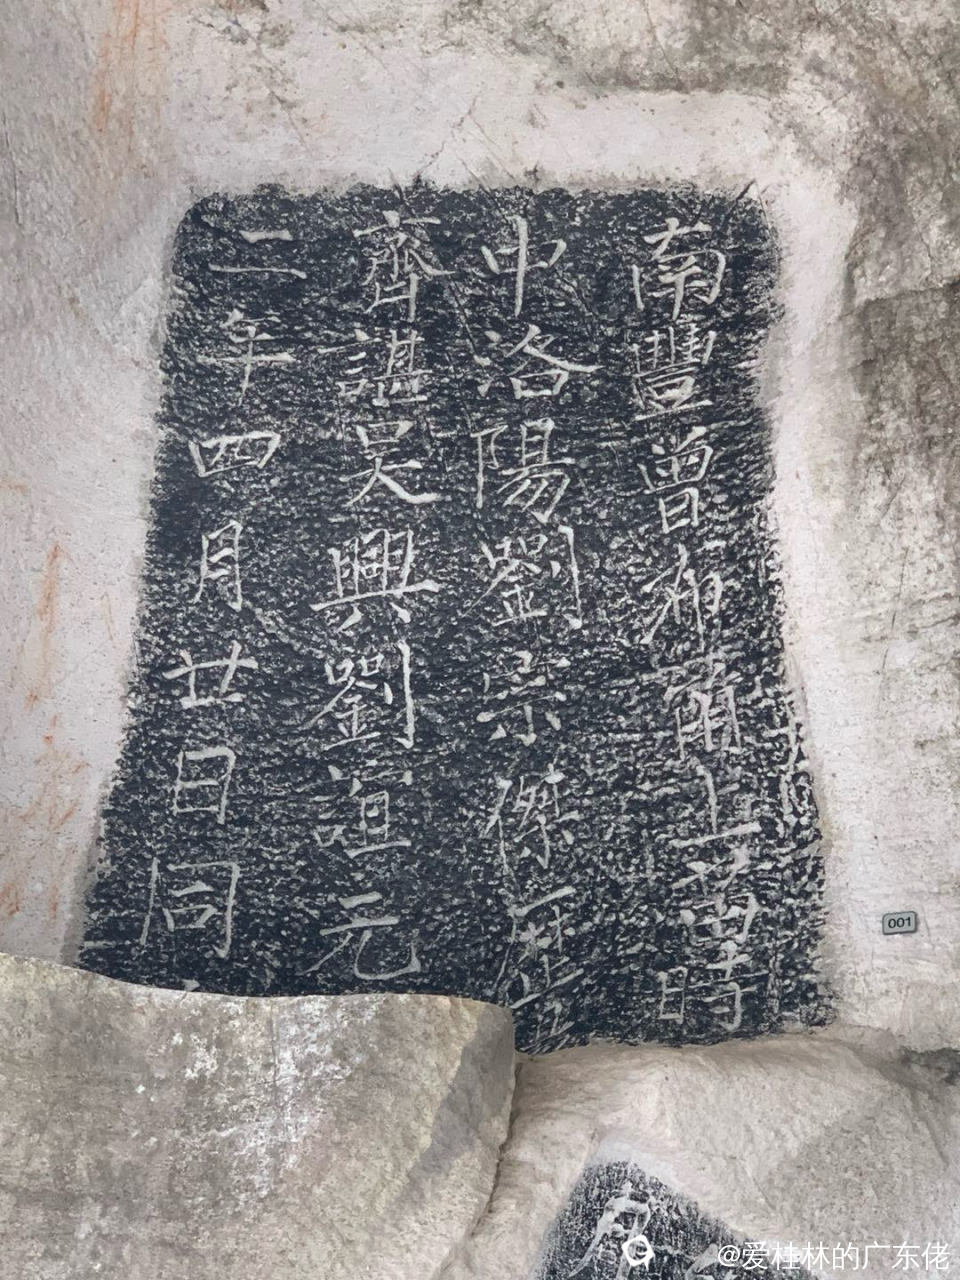 南豐曾布時
中洛陽劉宗傑歷
齊諶吳興劉誼元
二年四月廿日同
001
@爱桂林的广东佬